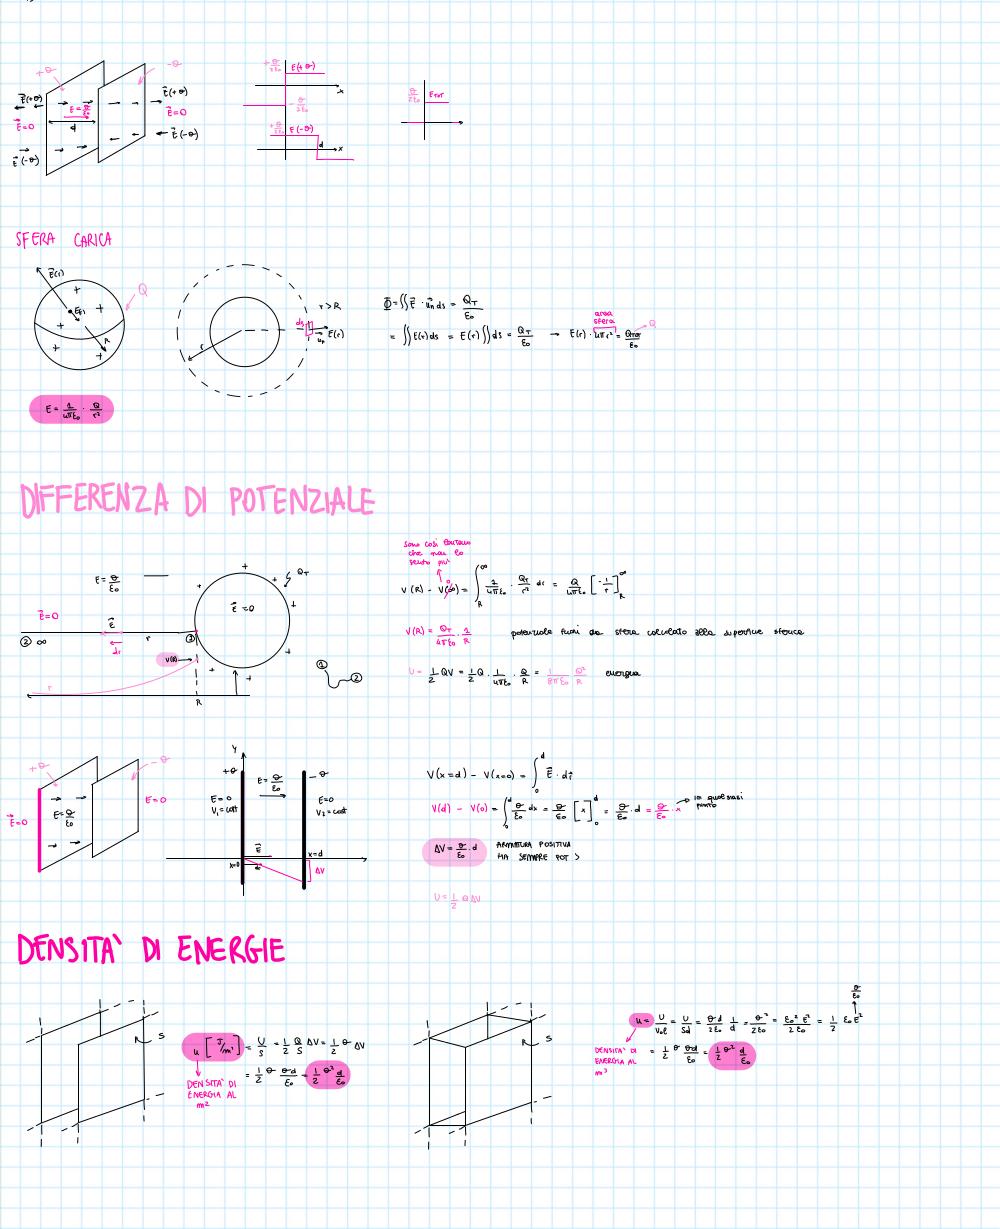 +σ
-σ
E⃗(+σ)
E⃗(+σ)
E⃗=0
E⃗=0
d
E⃗(-σ)
E⃗(-σ)
+σ/2ε₀ E(+σ)
x
-σ/2ε₀
+σ/2ε₀ E(-σ)
d
x
σ/2ε₀ E TOT
SFERA CARICA
E⃗(r)
Q
R
E = 1/4πε₀ · Q/r²
r > R
ds
E(r)
uₙ
r
Φ = ∬ E⃗ · u⃗ₙ ds = Q_T/ε₀
area sfera
= ∬ E(r) ds = E(r) ∬ ds = Q_T/ε₀ → E(r) · 4πr² = Q_TOT/ε₀ Q
DIFFERENZA DI POTENZIALE
E = σ/ε₀
Q_T
E⃗=0
E⃗=0
E⃗
② ∞
r
①
dr
V(R)
r
R
①
②
sono così lontano
che non lo
sento più
0
V(R) - V(∞) = ∫_R^∞ 1/4πε₀ · Q_T/r² dr = Q/4πε₀ [-1/r]_R^∞
V(R) = Q_T/4πε₀ · 1/R potenziale fuori da sfera calcolato alla superficie sferica
U = 1/2 QV = 1/2 Q · 1/4πε₀ · Q/R = 1/8πε₀ Q²/R energia
+σ
-σ
E = σ/ε₀
E=0
E⃗=0
y
+σ
-σ
E = σ/ε₀
E=0
V₁ = cost
E=0
V₂ = cost
E⃗
x=0
dr
x=d
ΔV
V(x=d) - V(x=0) = ∫_0^d E⃗ · dr⃗
V(d) - V(0) = ∫_0^d σ/ε₀ dx = σ/ε₀ [x]_0^d = σ/ε₀ · d = σ/ε₀ · x → in qualsiasi punto
ΔV = σ/ε₀ · d
ARMATURA POSITIVA
HA SEMPRE POT >
U = 1/2 Q ΔV
DENSITA' DI ENERGIE
S
u [J/m²] = U/S = 1/2 Q/S ΔV = 1/2 σ ΔV
= 1/2 σ σd/ε₀ = 1/2 σ² d/ε₀
DENSITA' DI
ENERGIA AL
m2
S
σ/ε₀
u = U/VOL = U/Sd = σd/2ε₀ 1/d = σ²/2ε₀ = ε₀² E²/2ε₀ = 1/2 ε₀E²
= 1/2 σ σd/ε₀ = 1/2 σ² d/ε₀
DENSITA' DI
ENERGIA AL
m³